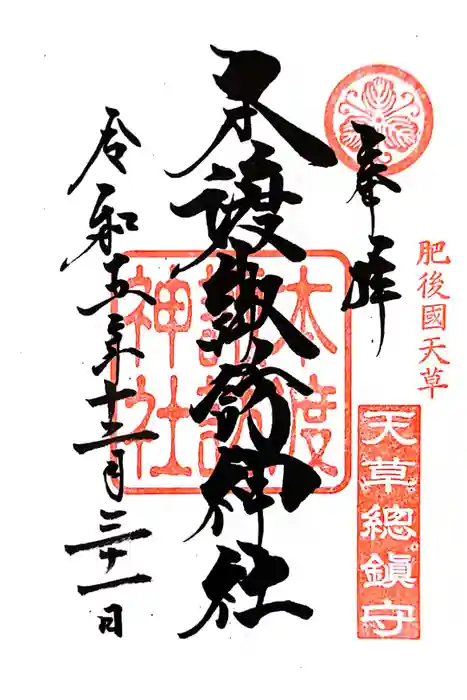 奉拝
肥後國天草
天草總鎮守
本渡諏訪神社
本渡諏訪神社
令和五年十二月三十一日